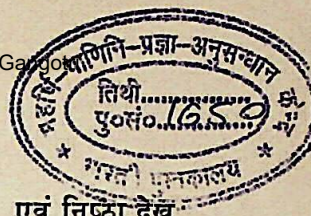 Gangotri
महर्षि-पाणिनि-प्रज्ञा-अनुसन्धान केन्द्र
तिथी..............
पु०सं०.1650
* भारती पुस्तकालय *
एवं निष्ठा देख